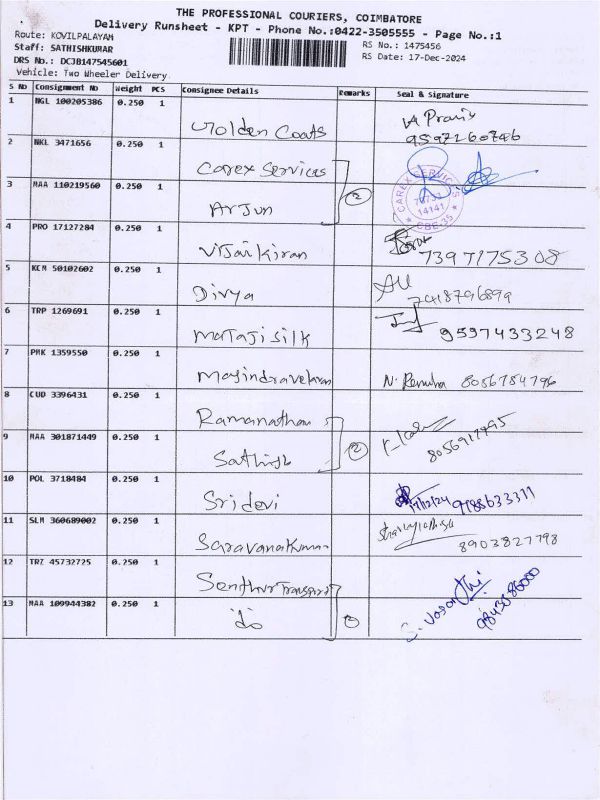 THE PROFESSIONAL COURIERS, COIMBATORE
Delivery Runsheet - KPT - Phone No.:0422-3505555 - Page No.:1
Route: KOVILPALAYAM
Staff: SATHISHKUMAR
DRS No.: DCJB147545601
Vehicle: Two Wheeler Delivery
RS No.: 1475456
RS Date: 17-Dec-2024
S No Consignment No Weight PCS Consignee Details Remarks Seal & Signature
1 NGL 100205386 0.250 1 Golden Coats 9597260746
2 NKL 3471656 0.250 1 Carex Services
3 MAA 110219560 0.250 1 Arjun 2
CAREX SERVICES
14141
CBE-35
4 PRO 17127284 0.250 1 Vijaikiran 7397175308
5 KCM 50102602 0.250 1 Divya 7418796899
6 TRP 1269691 0.250 1 Mataji silk 9597433248
7 PMK 1359550 0.250 1 N. Renuka 8056784796
8 CUD 3396431 0.250 1 Ramanathan
9 MAA 301871449 0.250 1 Sathish 2 8056917495
10 POL 3718484 0.250 1 Sridevi 17/12/24 9788633311
11 SLM 360689002 0.250 1 Saravanakumar 8903827798
12 TRZ 45732725 0.250 1 Senthur Transport
13 MAA 109944382 0.250 1 do 9843086000